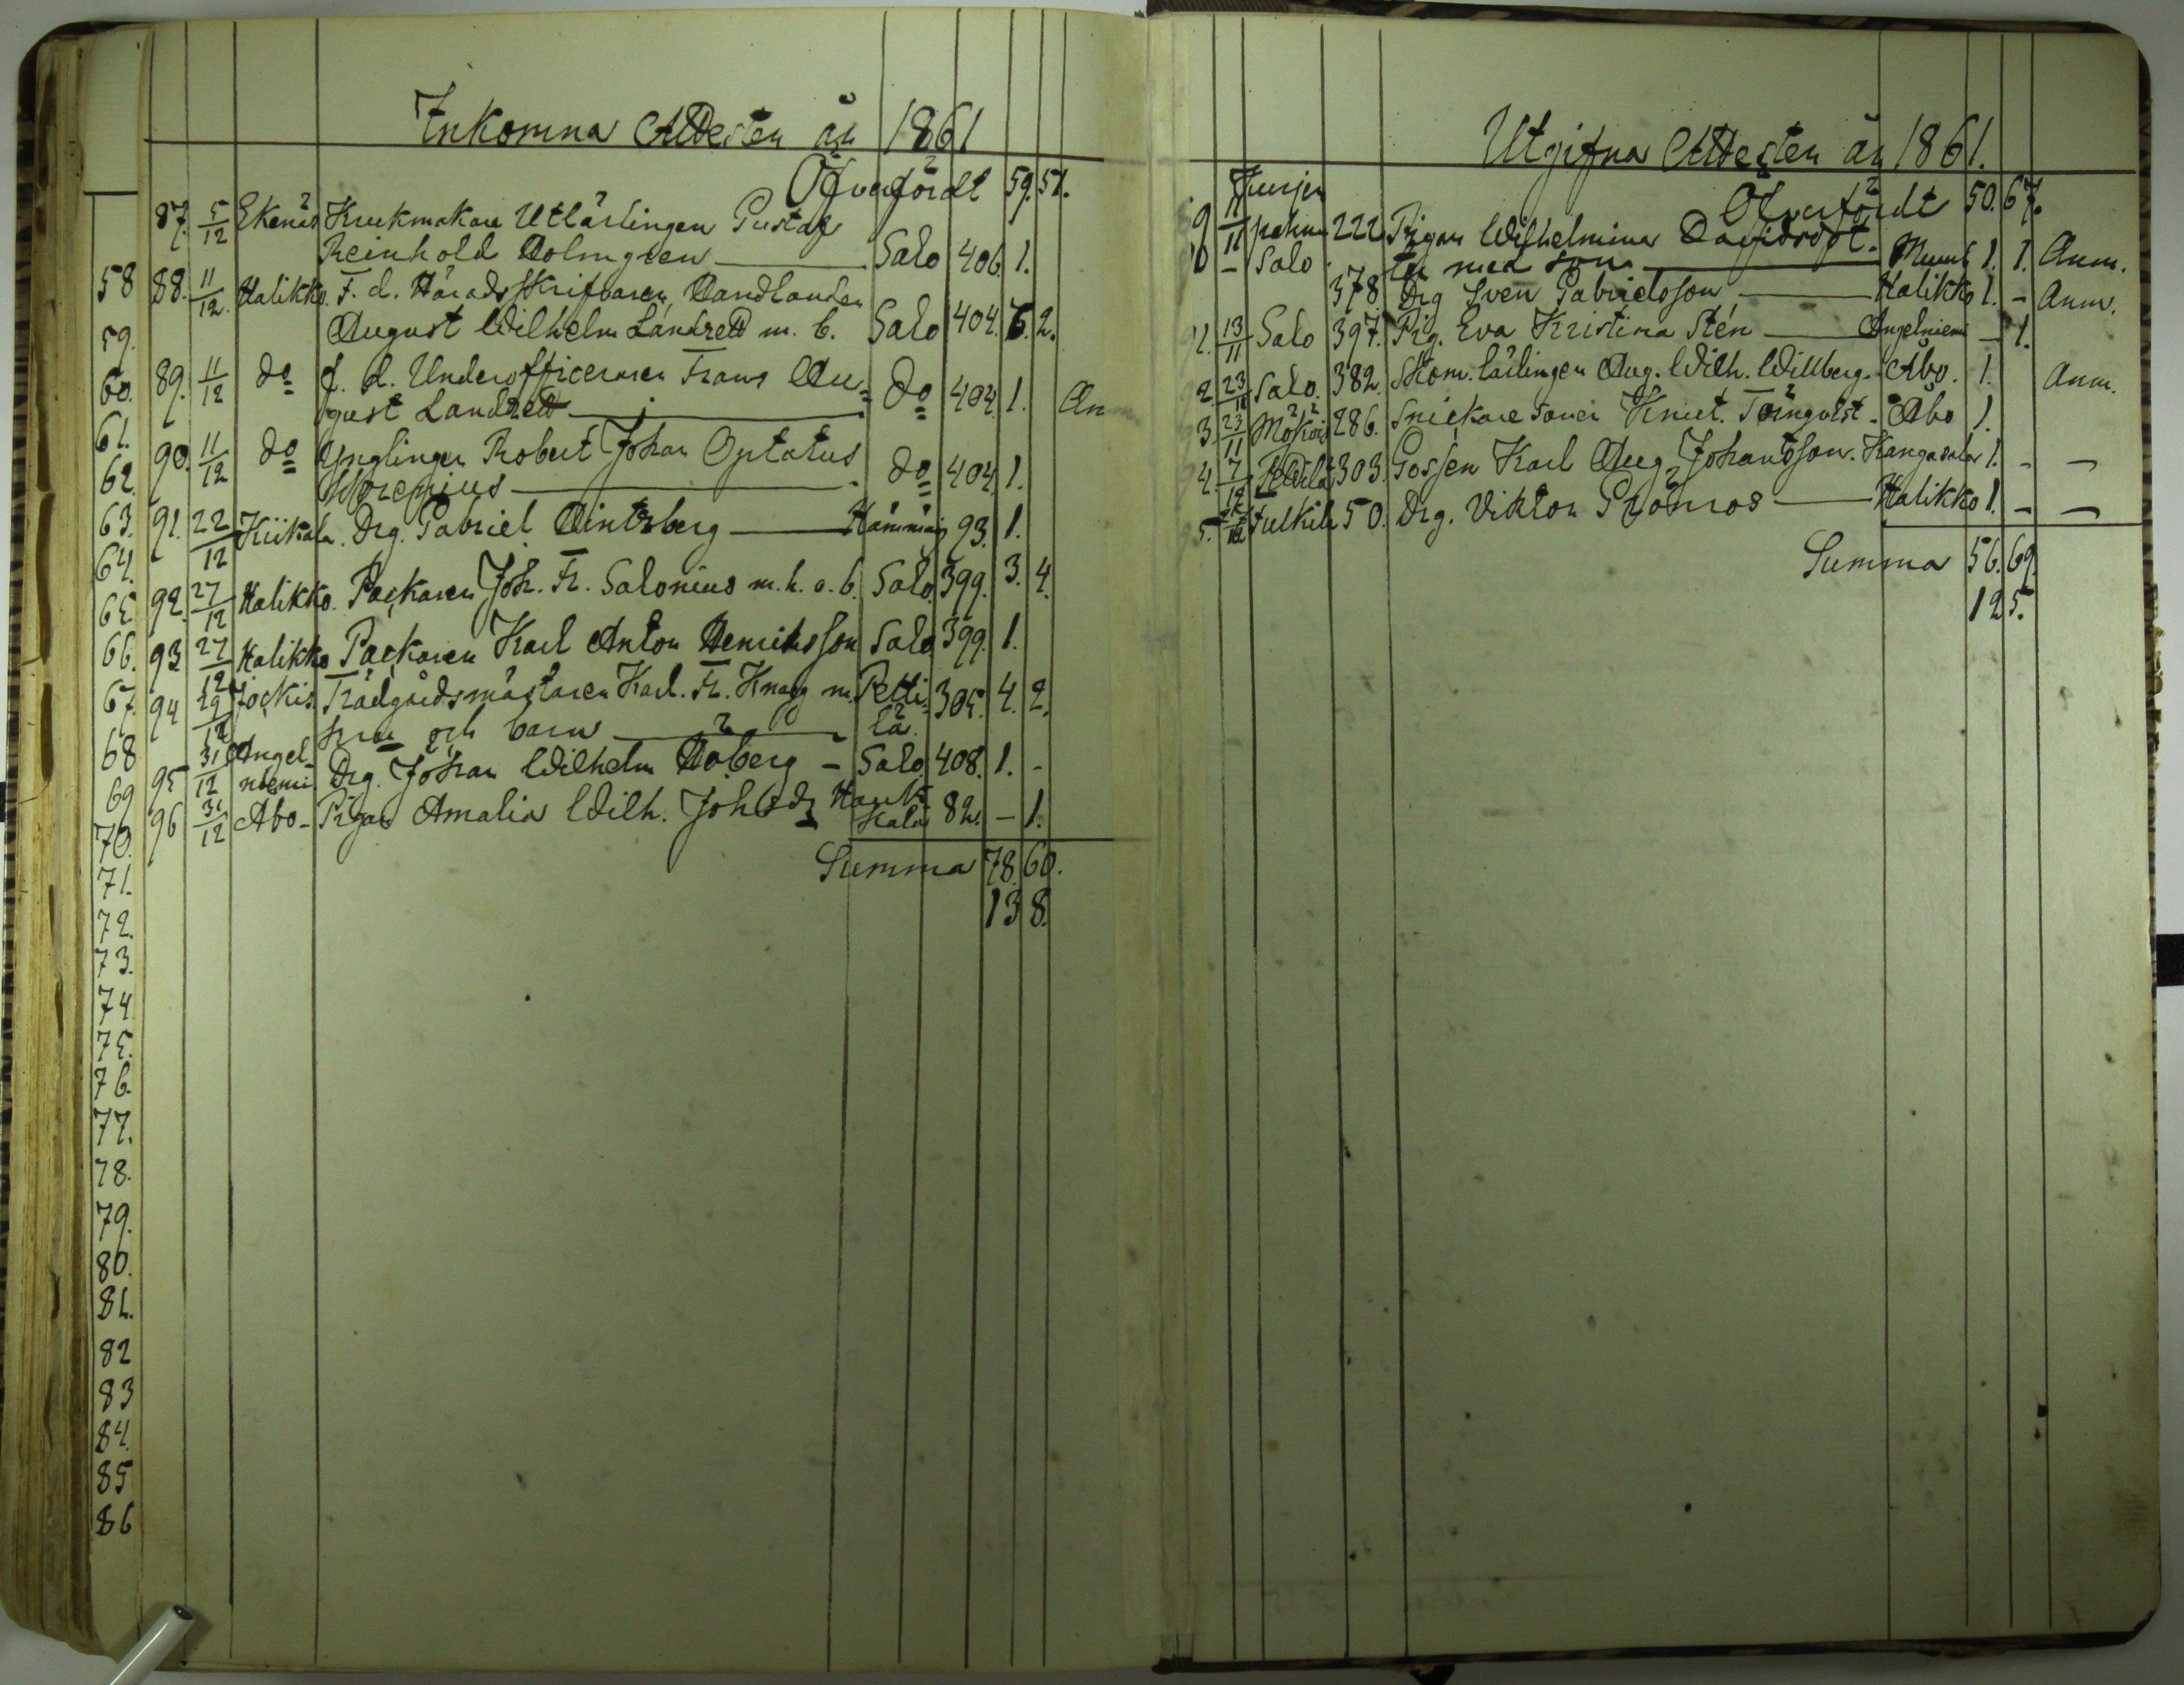 Inkomna Attester år 1861
Öfverfördt 59. 51.
87. 5/12 Ekenäs Krukmakare Utlärlingen Gustaf
Reinhold Holmgren Salo 406. 1.
88. 11/12. Halikko. F. d. Häradsskrifvaren, Handlanden
August Wilhelm Landzett m. b. Salo 404. 6. 2.
89. 11/12 do f. d. Underofficeraren Frans Au-
gust Landzett do 404. 1. An
90. 11/12 do Ynglingen Robert Johan Optatus
do 404. 1.
91. 22/12 Kiikala. Drg. Gabriel Hintzberg 93. 1.
92. 27/12 Halikko. Packaren Joh. Fr. Salonius m. h. o. b. Salo. 399. 3. 4.
93 27/12 Halikko Packaren Karl Anton Henriksson Salo 399. 1.
94 29/12 Jockis. Trädgårdsmästaren Karl. Fr. Knag m. Petti- 305. 4. 2.
fru och barn lä.
95 31/12 Angel-
niemi Drg. Johan Wilhelm Åberg - Salo. 408. 1. -
96 31/12 Åbo- Pigan Amalia Wilh. Johsdr Hauk
kala 82. - 1.
Summa 78. 60.
138.
58
59.
60.
61.
62.
63.
64.
65.
66.
67.
68
69
70.
71.
72.
73.
74
75.
76.
77.
78.
79.
80.
81.
82
83
84.
85
86
Utgifna Attester år 1861.
Öfverfördt 50. 67.
9 11/11 222 Pigan Wilhelmina Davidsdot-
ter med son 1. 1. Anm.
10 - Salo 378 Drg Sven Gabrielsson Halikko 1. - Anm.
91. 13/11 Salo 397. Pig. Eva Kristina Stén Angelniemi - 1.
2. 23/11 Salo. 382. Skom. lärlingen Aug. Wilh. Willberg. Åbo. 1. Anm.
3. 23/11 286. Snickare sonen Knut. Törnqvist - Åbo 1.
4. 7/12 Pettilä 303. Gossen Karl Aug. Johansson. Kangasala 1. - -
5. 50. Drg. Viktor Grönroos Halikko 1. - -
Summa 56. 69.
125.